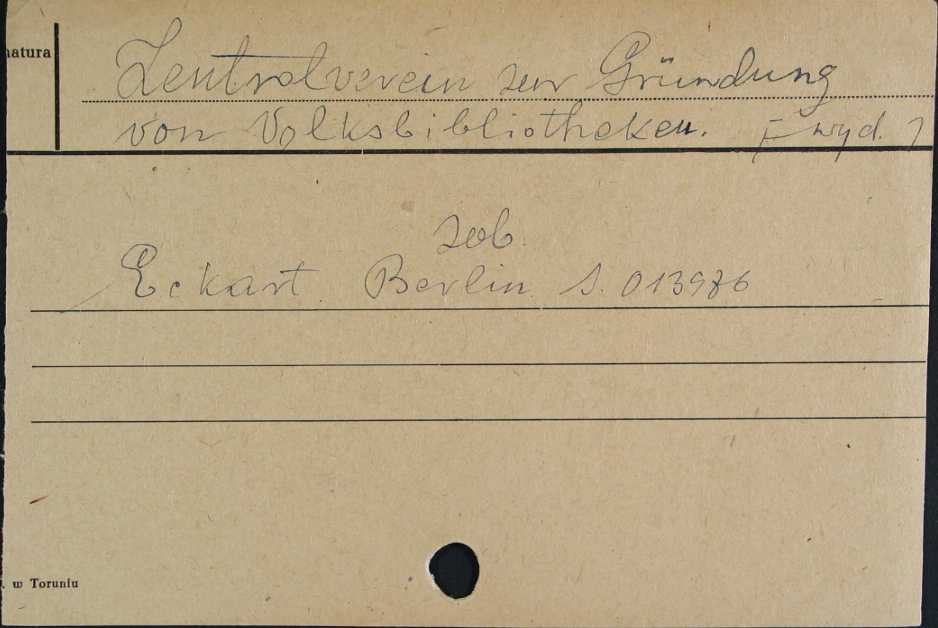 natura
Zentralverein zur Gründung
von Volksbibliotheken. [wyd.]
zob.
Eckart. Berlin S. 013976
. w Toruniu